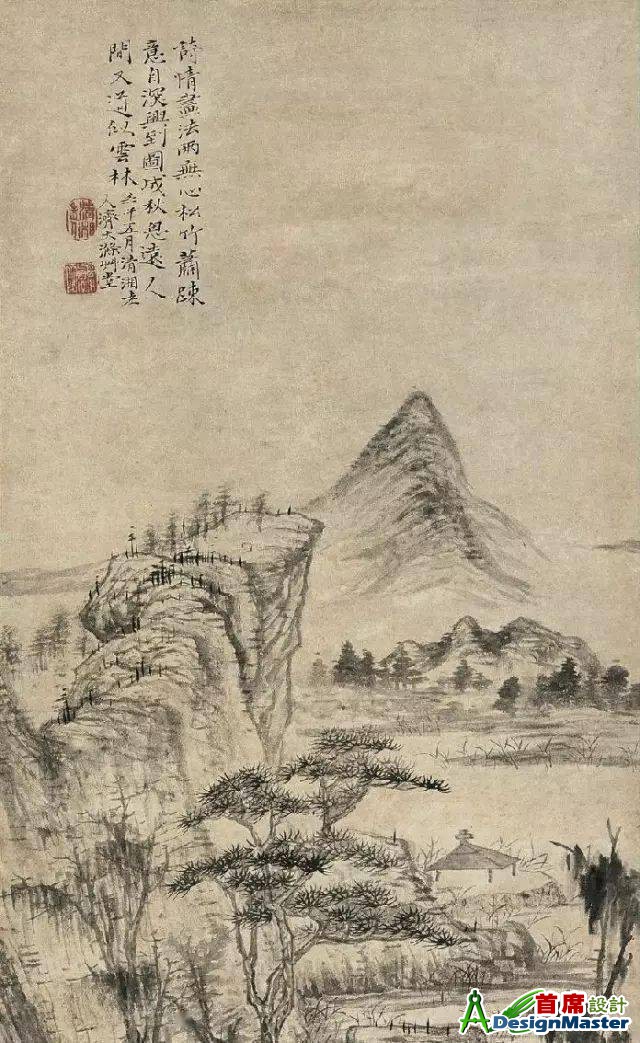 詩情畫法兩無心松竹蕭疎
意自深興到圖成秋思遠人
間又道似雲林
壬午五月清湘老
人濟大滌艸堂
首席設計
DesignMaster